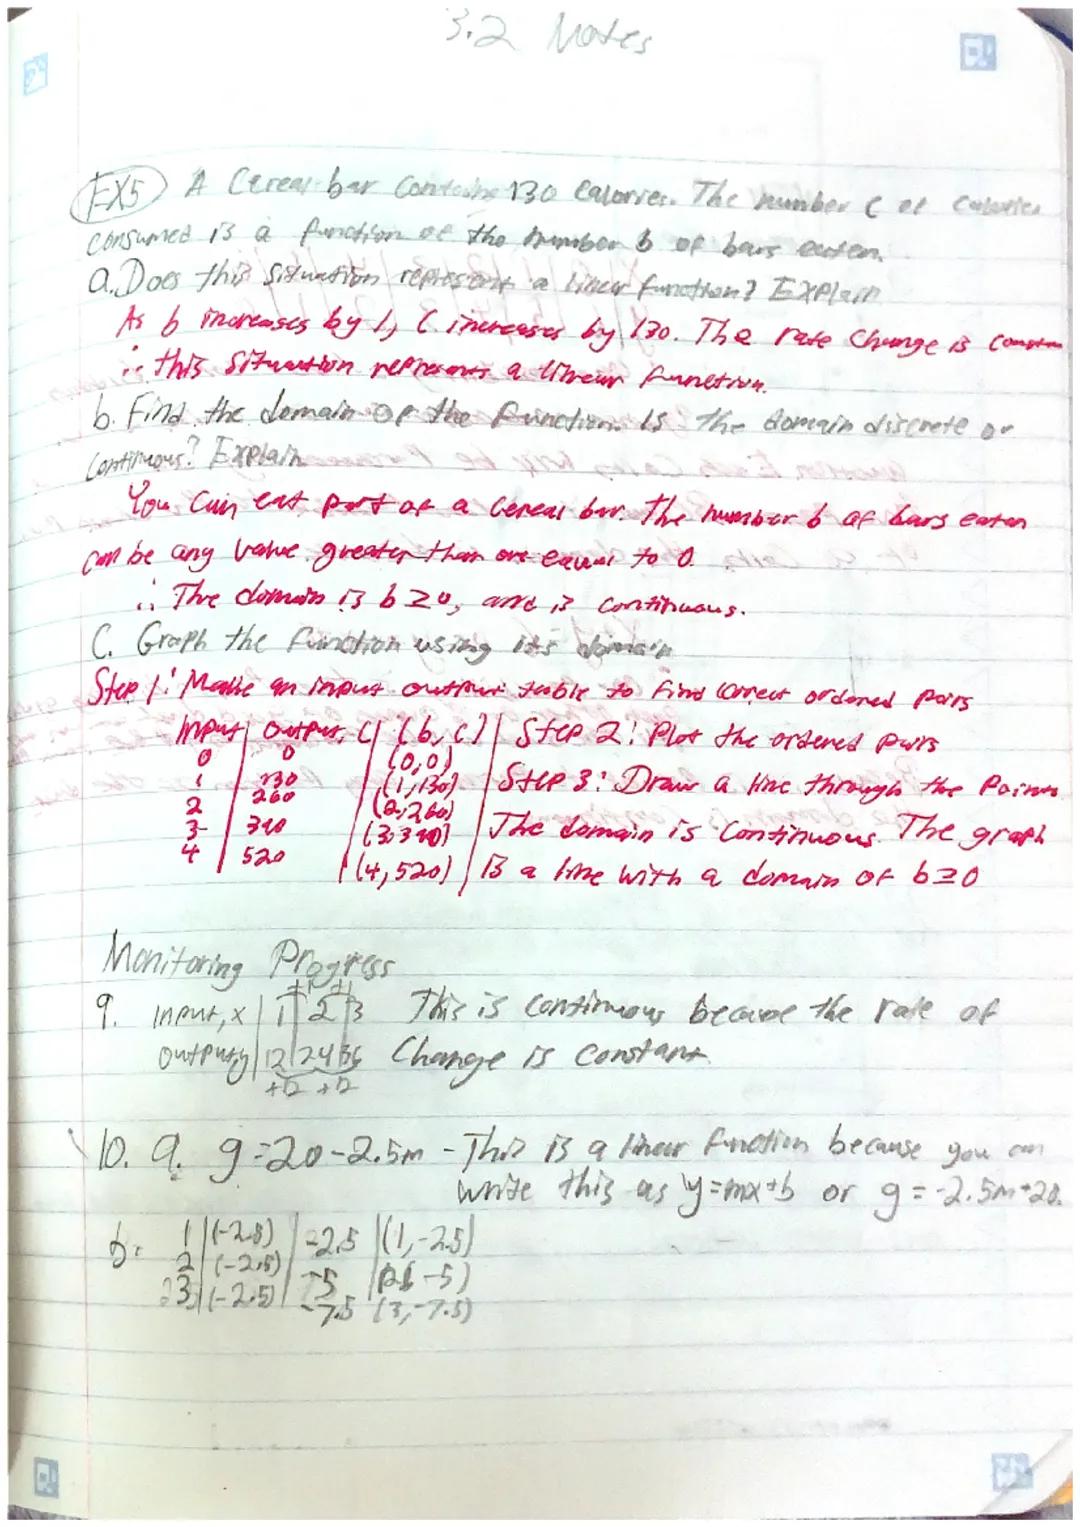 3.2 Notes
EX5 A Cereal bar contains 130 calories. The number C of calories
consumed is a function of the number b of bars eaten.
a. Does this situation represent a linear function? Explain
As b increases by 1, C increases by 130. The rate change is constan
∴ this situation represents a linear function.
b. Find the domain of the function. Is the domain discrete or
Continuous? Explain
You can eat part of a cereal bar. The number b of bars eaten
can be any value greater than ore equal to 0.
∴ The domain is b≥0, and is continuous.
C. Graph the function using its domain
Step 1: Make an input output table to find correct ordered pairs
Input | Output, C | (b, c) | Step 2: Plot the ordered pairs
0 0 (0,0)
1 130 (1,130) Step 3: Draw a line through the Points
2 260 (2,260)
3 390 (3,390) The domain is Continuous. The graph
4 520 (4,520) is a line with a domain of b≥0
Monitoring Progress
+1 +1
9. input, x | 1 | 2 | 3 This is continuous because the rate of
output, y | 12 | 24 | 36 Change is constant.
+12 +12
10. a. g=20-2.5m - This is a linear function because you can
write this as y=mx+b or g=-2.5m+20.
b. 1 | (-2.5) | -2.5 | (1,-2.5)
2 | (-2.5) | -5 | -5)
3 | (-2.5) | -7.5 (3,-7.5)